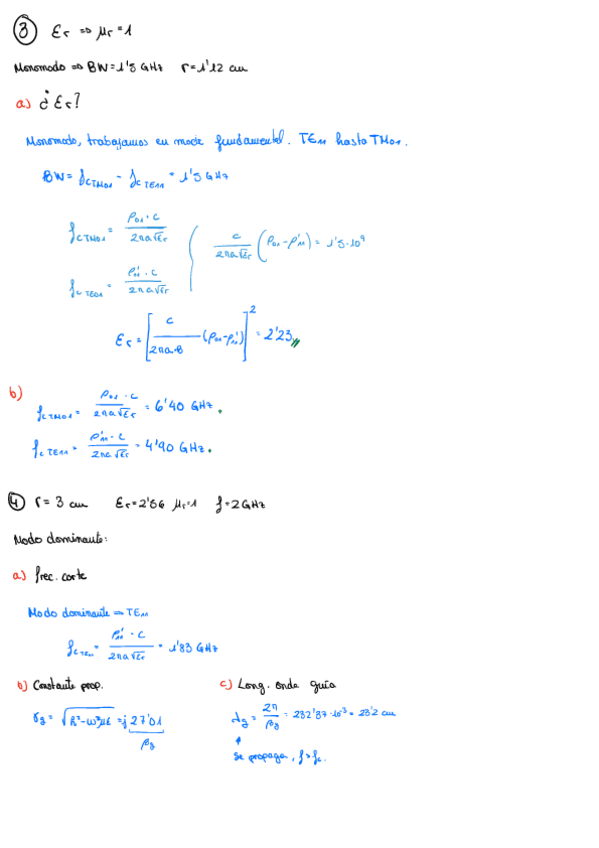 ③ Er ⇒ μr = 1
Monomodo ⇒ BW = 1'5 GHz r = 1'12 cm
a) ¿Er?
Monomodo, trabajamos en mode fundamental. TE11 hasta TM01.
BW = fcTM01 - fcTE11 = 1'5 GHz
fcTM01 = P01 · c / 2πa√Er
c / 2πa√Er (P01 - P'11) = 1'5·10⁹
fcTE01 = P'11 · c / 2πa√Er
Er = [c / 2πa·B (P01 - P'11)]² = 2'23
b)
fcTM01 = P01 · c / 2πa√Er = 6'40 GHz.
fcTE11 = P'11 · c / 2πa√Er = 4'90 GHz.
④ r = 3 cm Er = 2'56 μr = 1 f = 2 GHz
Modo dominante:
a) frec. corte
Modo dominante ⇒ TE11
fcTE11 = P'11 · c / 2πa√Er = 1'83 GHz
b) Constante prop.
c) Long. onda guía
γg = √(h² - ω²με) = j 27'01
βg
λg = 2π / βg = 232'87·10⁻³ = 23'2 cm
Se propaga, f > fc.